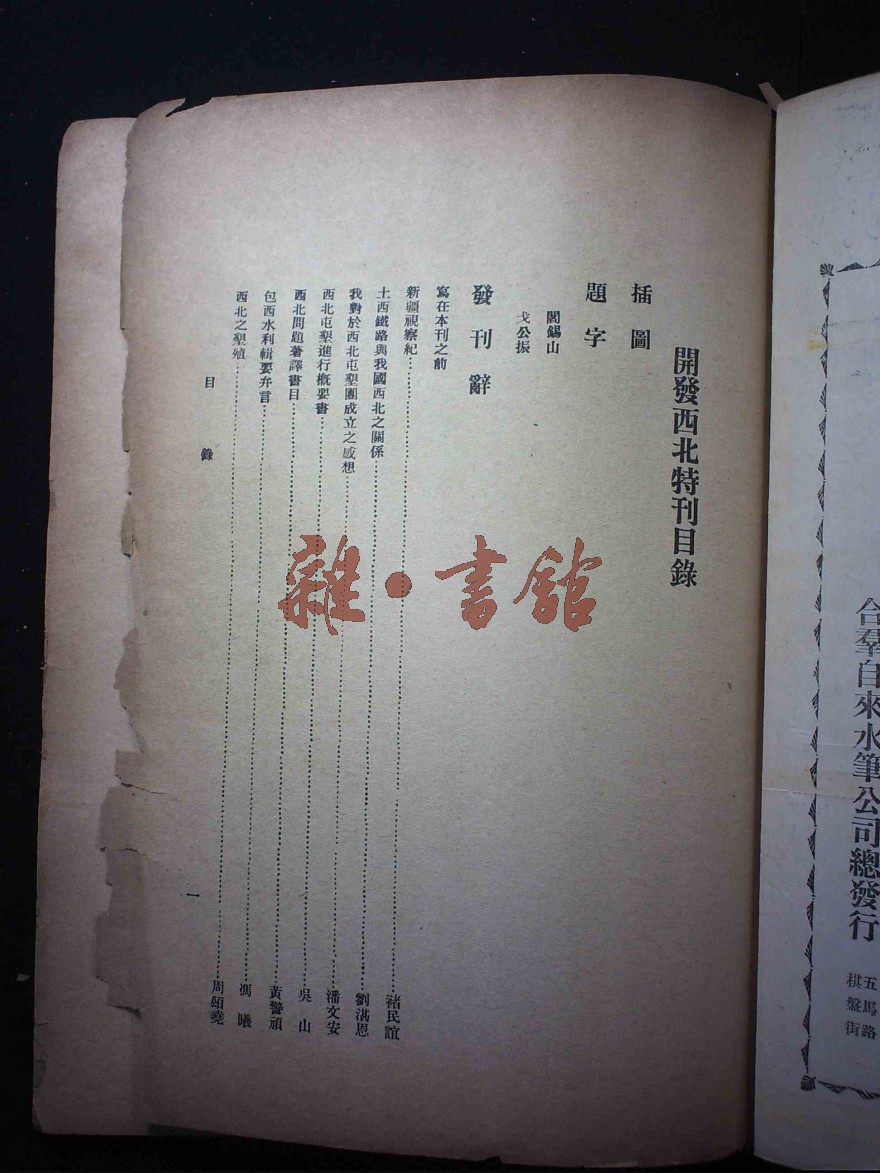 開發西北特刊目錄
插圖
題字
閻錫山
戈公振
發刊辭
寫在本刊之前
新疆視察紀 褚民誼
土西鐵路與我國西北之關係 劉湛恩
我對於西北屯墾團成立之感想 潘文安
西北屯墾進行概要書 吳山
西北問題著譯書目 黃警頑
包西水利輯要弁言 馮曦
西北之墾殖 周頌堯
目錄
一
雜·書館
合羣自來水筆公司總發行
五馬路
棋盤街